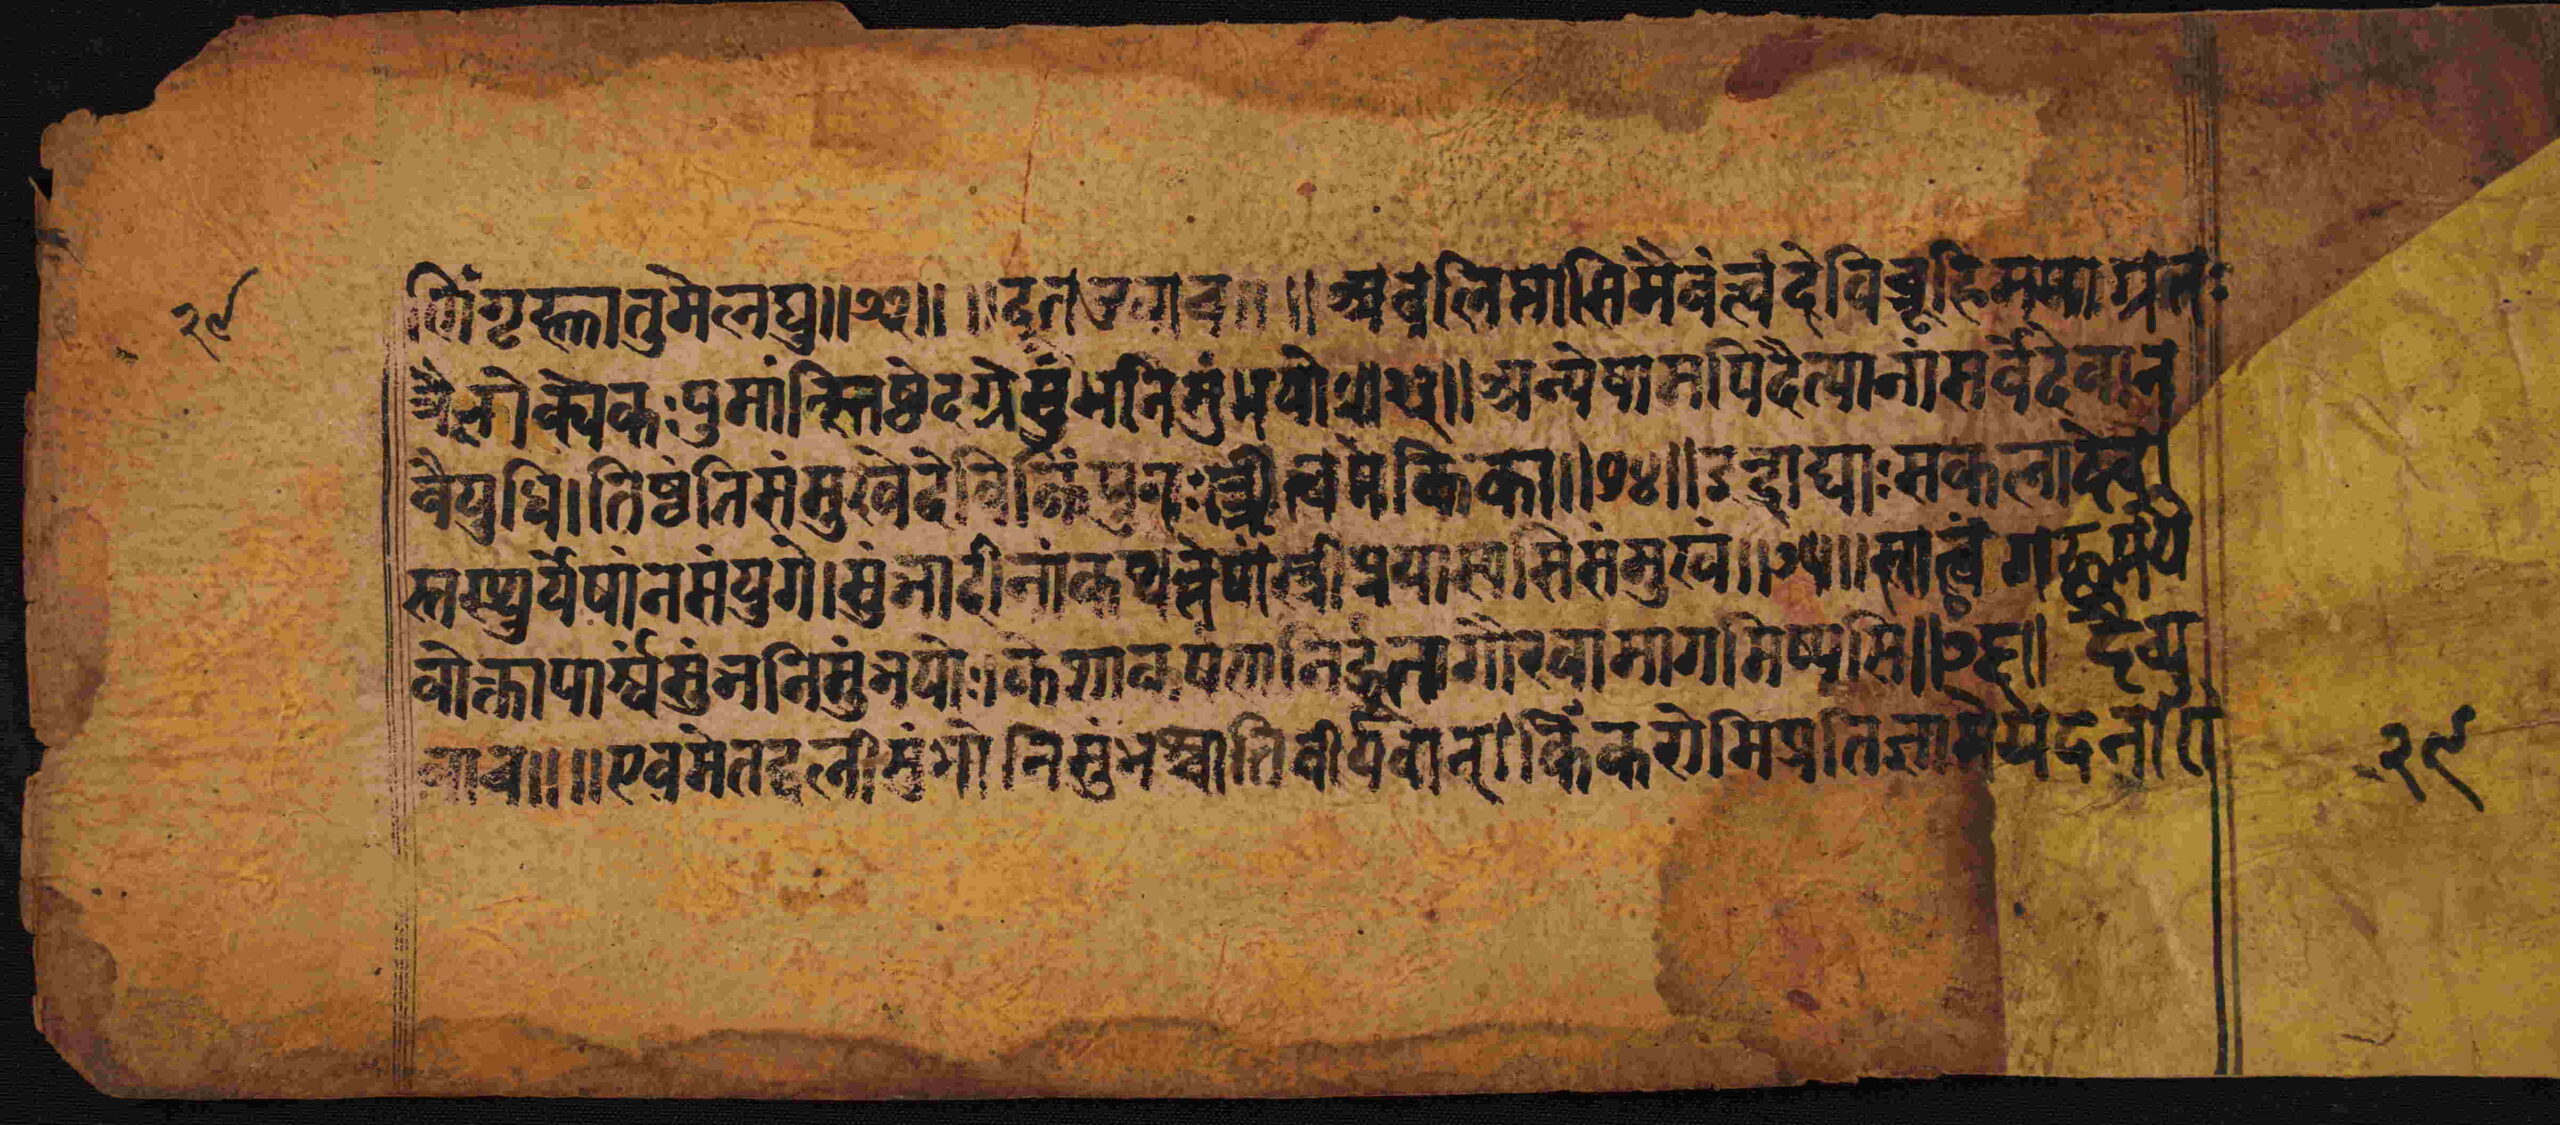 २९
णिंगृह्णातुमेलघु॥७२॥ ॥दूतउवाच॥ ॥अवलिप्तासिमैवंत्वंदेविब्रूहिममाग्रतः
त्रैलोक्येकःपुमांन्स्तिष्ठेदग्रेसुंभनिसुंभयोः॥ ॥अन्येषामपिदैत्यानांसर्वेदेवान
वैयुधि।तिष्ठंतिसंमुखेदेविकिंपुनःस्त्रीत्वमेकिका॥७४॥इन्द्राद्याःसकलादेवा
स्तस्थुर्येषांनसंयुगे।सुंभादीनांकथन्तेषांस्त्रीप्रयास्यसिसंमुखं॥७५॥सात्वंगच्छमयै
वोक्तापार्श्वंसुंभनिसुंभयोः।केशाकर्षणनिर्द्धूतागौरवामागमिष्यसि॥७६॥ देव्यु
वाच॥ ॥एवमेतद्बलीसुंभोनिसुंभश्चातिवीर्यवान्।किंकरोमिप्रतिज्ञामेयदना
२९